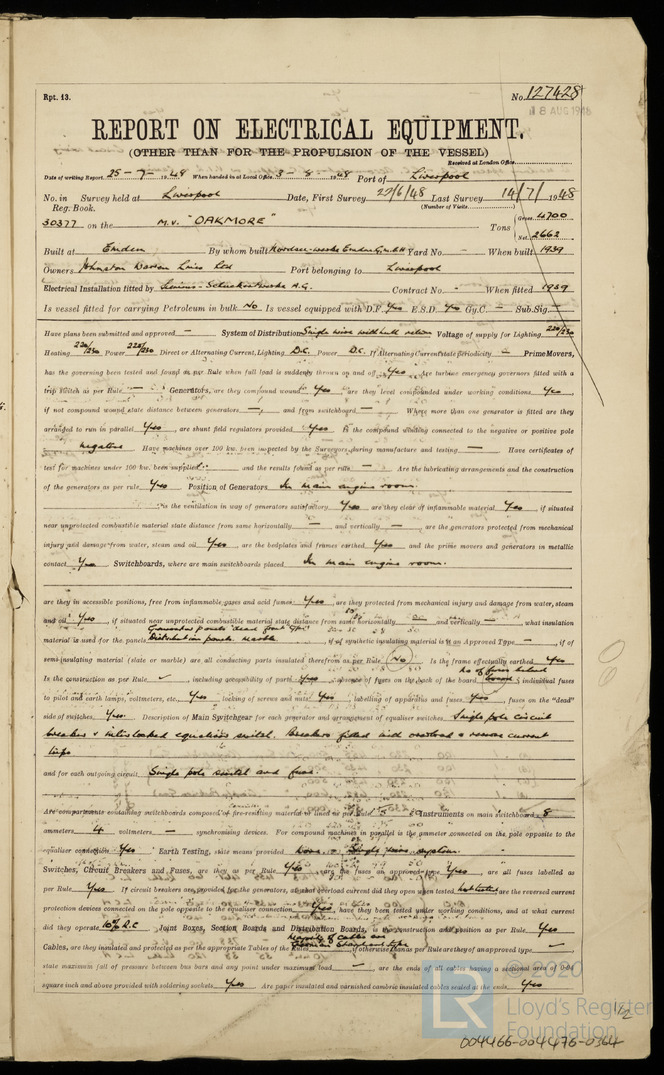 Rpt. 13.
No. 127428
8 AUG 1948
REPORT ON ELECTRICAL EQUIPMENT.
(OTHER THAN FOR THE PROPULSION OF THE VESSEL)
Received at London Office
Date of writing Report 25-7-1948 When handed in at Local Office 3-8-1948 Port of Liverpool
No. in Survey held at Liverpool Date, First Survey 29/6/48 Last Survey 14/7/1948
Reg. Book. (Number of Visits
30377 on the M.V. "OAKMORE" Tons Gross 4700 Net 2662
Built at Emden By whom built Nordsee-werke Emden G.m.b.H Yard No. — When built 1939
Owners Johnston Warren Lines Ltd Port belonging to Liverpool
Electrical Installation fitted by Siemens-Schuckertwerke A.G. Contract No. - When fitted 1939
Is vessel fitted for carrying Petroleum in bulk No Is vessel equipped with D.F. Yes E.S.D. Yes Gy.C. — Sub.Sig.
Have plans been submitted and approved — System of Distribution Single wire with hull return Voltage of supply for Lighting 220/230
Heating 220/230 Power 220/230 Direct or Alternating Current, Lighting D.C. Power D.C. If Alternating Current state periodicity — Prime Movers,
has the governing been tested and found as per Rule when full load is suddenly thrown on and off Yes Are turbine emergency governors fitted with a
trip switch as per Rule — Generators, are they compound wound Yes, are they level compounded under working conditions Yes,
if not compound wound state distance between generators —, and from switchboard — Where more than one generator is fitted are they
arranged to run in parallel Yes, are shunt field regulators provided Yes Is the compound winding connected to the negative or positive pole
negative Have machines over 100 kw. been inspected by the Surveyors during manufacture and testing — Have certificates of
test for machines under 100 kw. been supplied and the results found as per rule — Are the lubricating arrangements and the construction
of the generators as per rule Yes Position of Generators In main engine room.
is the ventilation in way of generators satisfactory Yes are they clear of inflammable material Yes, if situated
near unprotected combustible material state distance from same horizontally — and vertically —, are the generators protected from mechanical
injury and damage from water, steam and oil Yes, are the bedplates and frames earthed Yes and the prime movers and generators in metallic
contact Yes Switchboards, where are main switchboards placed In main engine room.
are they in accessible positions, free from inflammable gases and acid fumes Yes, are they protected from mechanical injury and damage from water, steam
and oil Yes, if situated near unprotected combustible material state distance from same horizontally — and vertically —, what insulation
material is used for the panels Generator panels dead front Distribution panels. Marble, if of synthetic insulating material is it an Approved Type —, if of
semi-insulating material (slate or marble) are all conducting parts insulated therefrom as per Rule No Is the frame effectually earthed Yes
Is the construction as per Rule ✓, including accessibility of parts Yes, absence of fuses on the back of the board No, individual fuses
to pilot and earth lamps, voltmeters, etc. Yes locking of screws and nuts Yes labelling of apparatus and fuses Yes, fuses on the "dead"
side of switches Yes Description of Main Switchgear for each generator and arrangement of equaliser switches Single pole circuit
breakers & interlocked equalising switch. Breakers fitted with overload & reverse current
trips
and for each outgoing circuit Single pole switch and fuse.
Are compartments containing switchboards composed of fire-resisting material or lined as per Rule Instruments on main switchboard 8
ammeters 4 voltmeters — synchronising devices. For compound machines in parallel is the ammeter connected on the pole opposite to the
equaliser connection Yes Earth Testing, state means provided None. Single wire system.
Switches, Circuit Breakers and Fuses, are they as per Rule Yes, are the fuses an approved type Yes, are all fuses labelled as
per Rule Yes If circuit breakers are provided for the generators, at what overload current did they open when tested Not tested are the reversed current
protection devices connected on the pole opposite to the equaliser connection Yes, have they been tested under working conditions, and at what current
did they operate 10% R.C Joint Boxes, Section Boards and Distribution Boards, is the construction and position as per Rule Yes
Cables, are they insulated and protected as per the appropriate Tables of the Rules Majority of cables are German Standard type if otherwise than as per Rule are they of an approved type —
state maximum fall of pressure between bus bars and any point under maximum load —, are the ends of all cables having a sectional area of 0.04
square inch and above provided with soldering sockets Yes Are paper insulated and varnished cambric insulated cables sealed at the ends Yes
1/2
© 2020
LR
Lloyd's Register
Foundation
004466-004476-0364